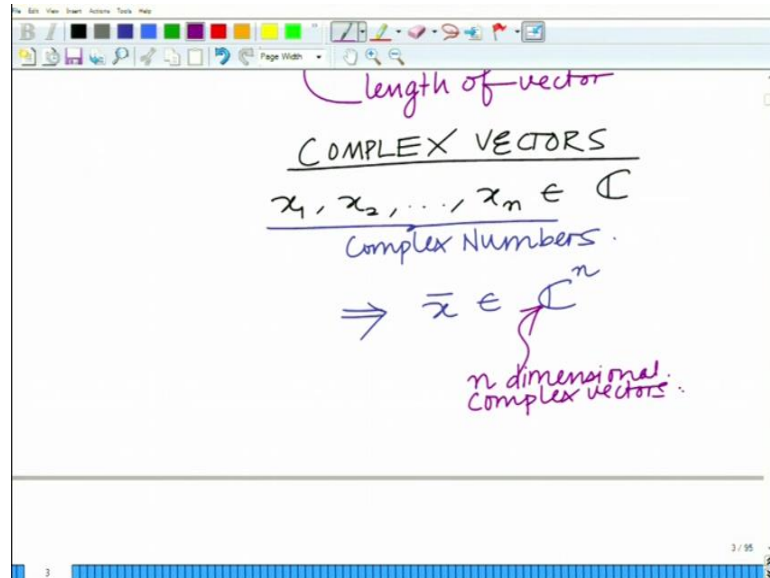 File Edit View Insert Actions Tools Help
B I
Page Width
length of vector
COMPLEX VECTORS
x₁, x₂, ..., xₙ ∈ ℂ
Complex Numbers.
⇒ x̄ ∈ ℂⁿ
n dimensional.
complex vectors.
3 / 95
3